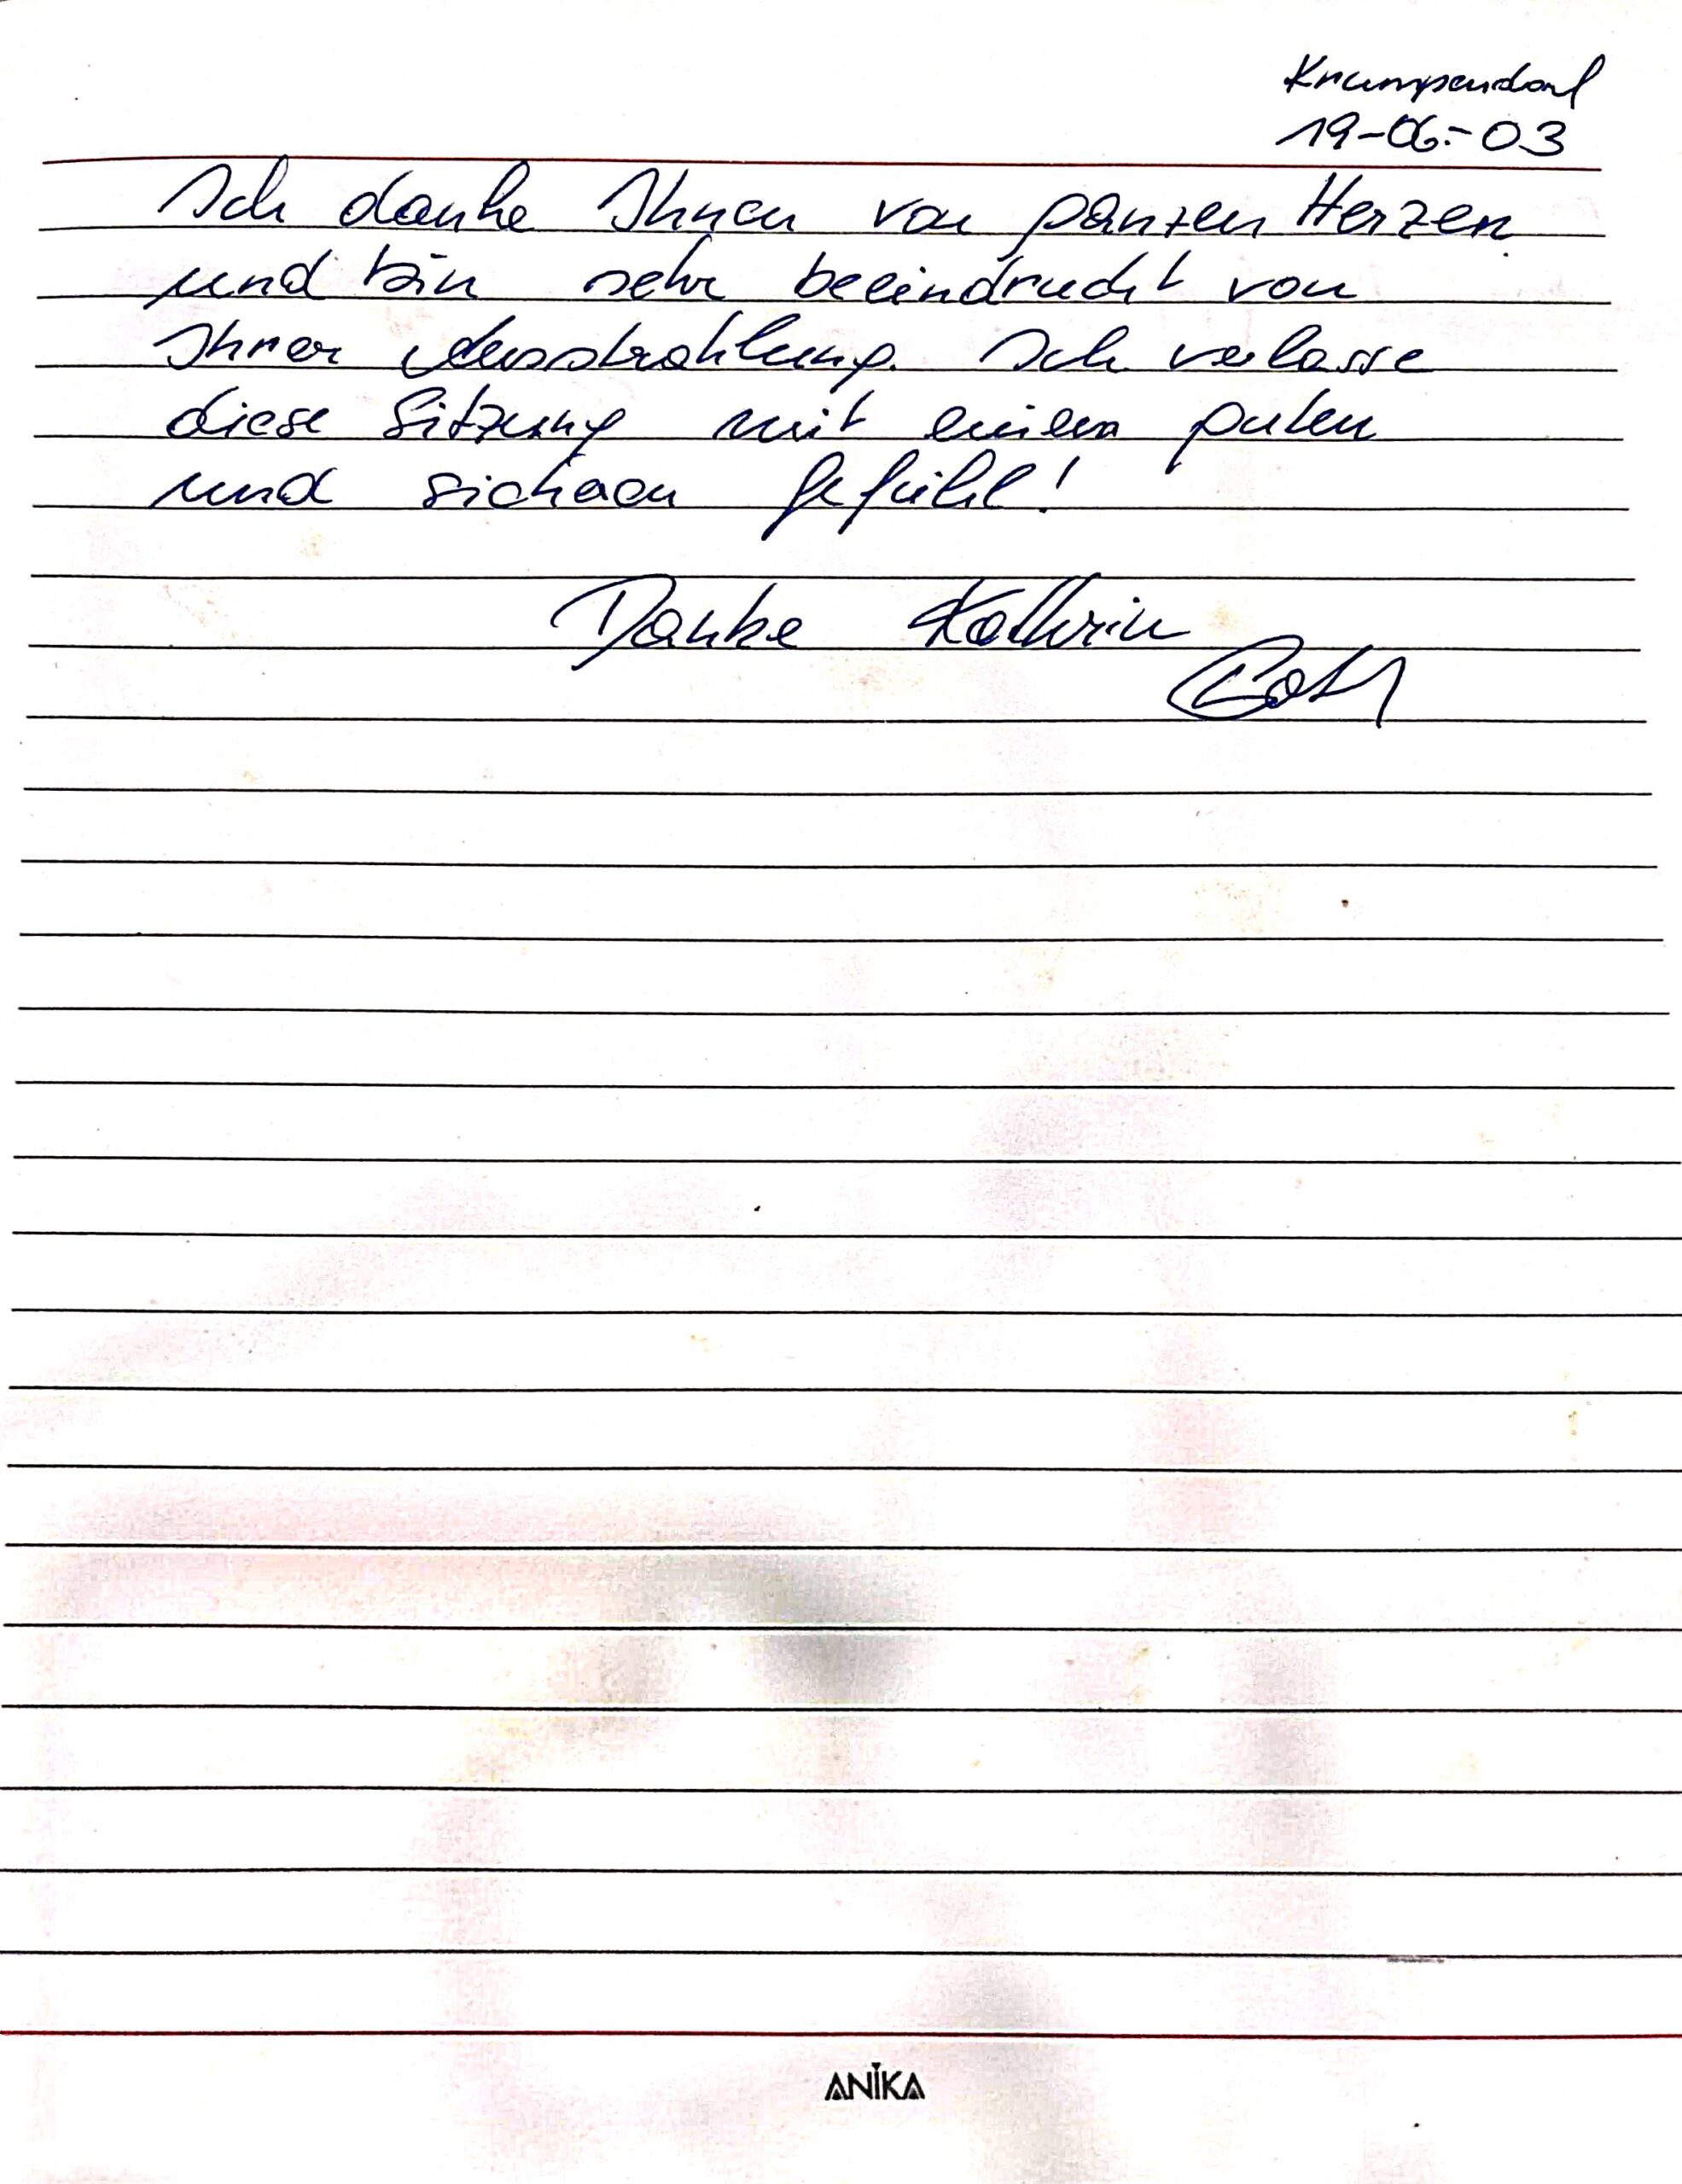 Krumpendorf
19-06-03
Ich danke Ihnen von ganzen Herzen
und bin sehr beeindruckt von
Ihrer Ausstrahlung. Ich verlasse
diese Sitzung mit einem guten
und sicheren Gefühl!
Danke Kathrin
ANIKA